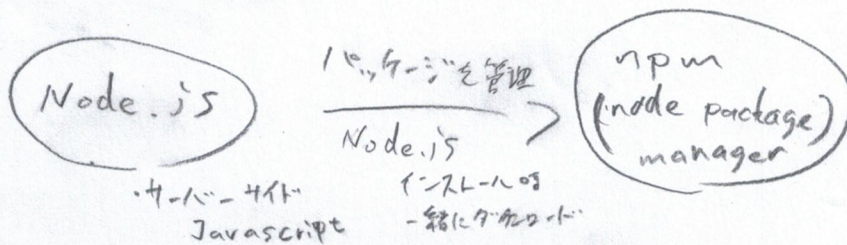 Node.js
・サーバーサイド
Javascript
パッケージを管理
Node.js
インストール時
一緒にダウンロード
npm
(node package)
manager